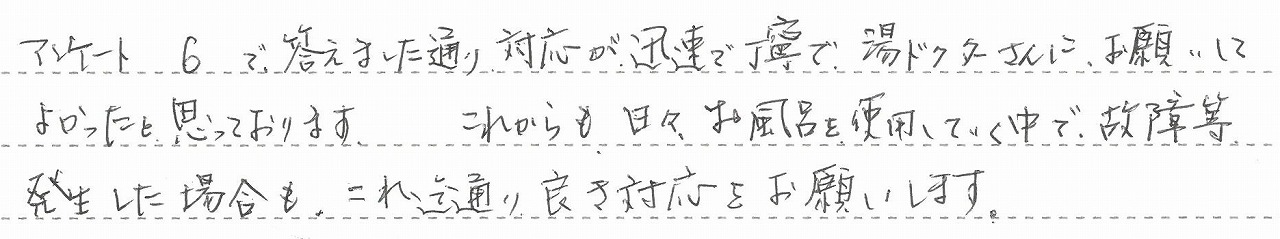 アンケート 6 で答えました通り 対応が迅速で丁寧で、湯ドクターさんに、お願いして
よかったと思っております。 これからも、日々、お風呂を使用していく中で、故障等
発生した場合も、これ迄通り良き対応をお願いします。